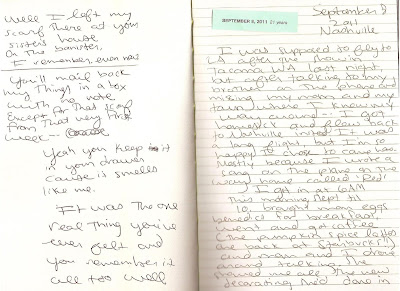 Well I left my
scarf there at your
sisters house
On the banister,
I remember, even now
You'll mail back
my things in a box
with no note
Except for that scarf
from that very first
week --
Yeah you keep it
in your drawer
Cause is smells
like me.
It was the one
real thing you've
ever felt and
you remember it
all too well
SEPTEMBER 8, 2011 21 years
September 8
2011
Nashville
I was supposed to fly to
LA after the show in
Tacoma WA last night,
but after talking to my
brother on the phone and
missing my mom and my
town where I know my
way around - I got
homesick and flew back
to Nashville instead. It was
a long flight, but I'm so
happy I chose to come home.
Mostly because I wrote a
song on the plane on the
way home called "Red"
I got in at 6AM
this morning, slept til
10, brought mom eggs
benedict for breakfast,
went and got coffee
(the pumpkin spice lattes
are back at Starbucks!!)
and mom and I drove
around talking. She
showed me all the new
decorating she'd done in